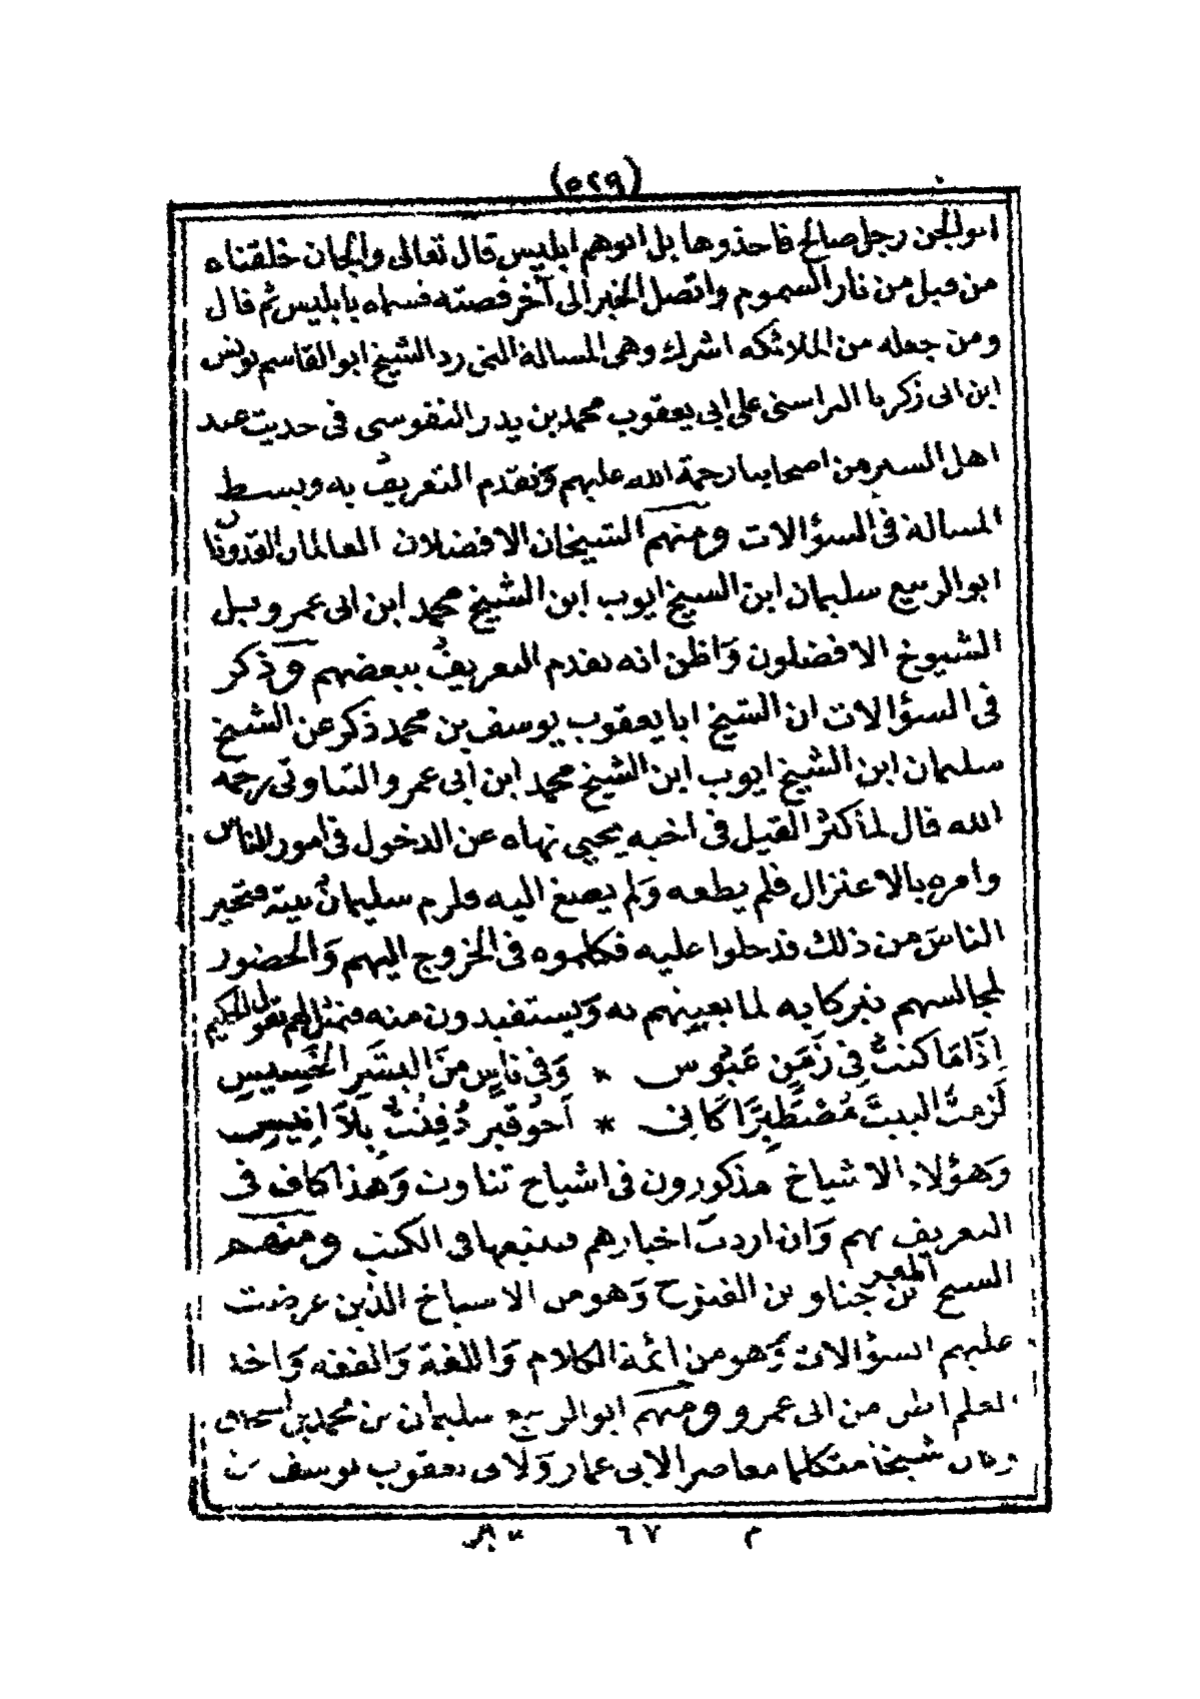 (٥٢٩)
ابو الجن رجل صالح فاحذروها بل ابوهم ابليس قال تعالى والجان خلقناه
من قبل من نار السموم واتصل الخبر الى آخر قصته فسماه يابليس ثم قال
ومن جعله من الملائكه اشرك وهى المسالة التى رد الشيخ ابو القاسم يونس
ابن ابى زكريا على ابى يعقوب محمد بن يدر النفوسى فى حديث عند
اهل السير من اصحابنا رحمة الله عليهم وتقدم التعريف به وبسط
المسالة فى السؤالات ومنهم الشيخان الافضلان العالمان القدوتان
ابو الربيع سليمان ابن الشيخ ايوب ابن الشيخ محمد ابن ابى عمرو وسل
الشيوخ الافضلون واظن انه تقدم التعريف ببعضهم وذكر
فى السؤالات ان الشيخ ابا يعقوب يوسف بن محمد ذكر عن الشيخ
سليمان ابن الشيخ ايوب ابن الشيخ محمد ابن أبى عمرو التناوتى رحمه
الله قال لما كثر القيل فى اخيه يحيى نهاه عن الدخول فى امور الناس
وامره بالاعتزال فلم يطعه ولم يصغ اليه فلزم سليمان بيته فتحير
الناس من ذلك فدخلوا عليه فكلموه فى الخروج اليهم والحضور
لمجالسهم تبركا به لما يعينهم به ويستفيدون منه فتمثل لهم بقول الحكيم
إِذَا مَا كنتُ فِى زَمَنٍ عَبُوسٍ * وَفى ناسٍ مِنَ البشَرِ الخَسِيسِ
لَزمتُ البيتَ مُصْطَبِرًا كَانى * أَخُو قبرٍ دُفِنْتُ بِلَا انِيسٍ
وَهؤلاء الاشياخ مذكورون فى اشياخ تناوت وَهذا كاف فى
التعريف بهم وَان اردت اخبارهم فتتبعها فى الكتب ومنهم
الشيخ المعز بن جناو بن الفتوح وَهو من الاشياخ الذين عرضت
عليهم السؤالات وَهو من ائمة الكلام وَاللغة وَالفقه وَاخذ
العلم عن ابى عمرو ومنهم ابو الربيع سليمان بن محمد بن
وكان شيخا متكلما معاصرا لابى عمار وَلابى يعقوب يوسف بن
م ٦٧ سير